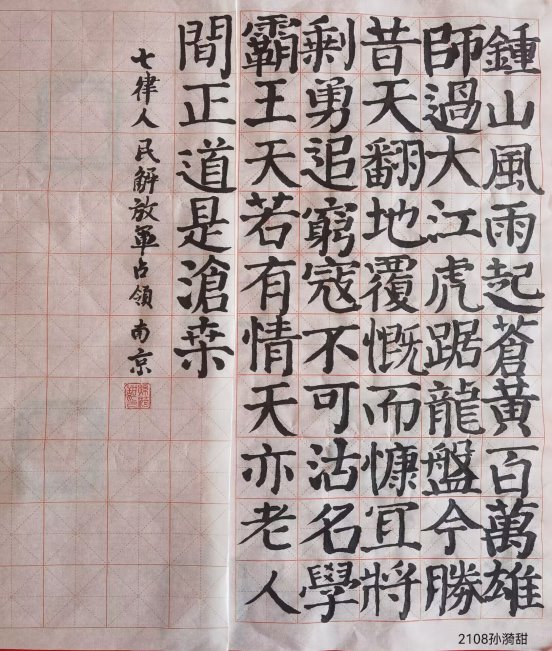 鍾山風雨起蒼黃百萬雄
師過大江虎踞龍盤今勝
昔天翻地覆慨而慷宜將
剩勇追窮寇不可沽名學
霸王天若有情天亦老人
間正道是滄桒
七律人民解放軍占領南京
2108孙漪甜